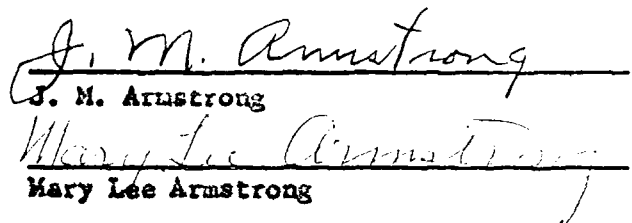 J. M. Armstrong
J. M. Armstrong
Mary Lee Armstrong
Mary Lee Armstrong